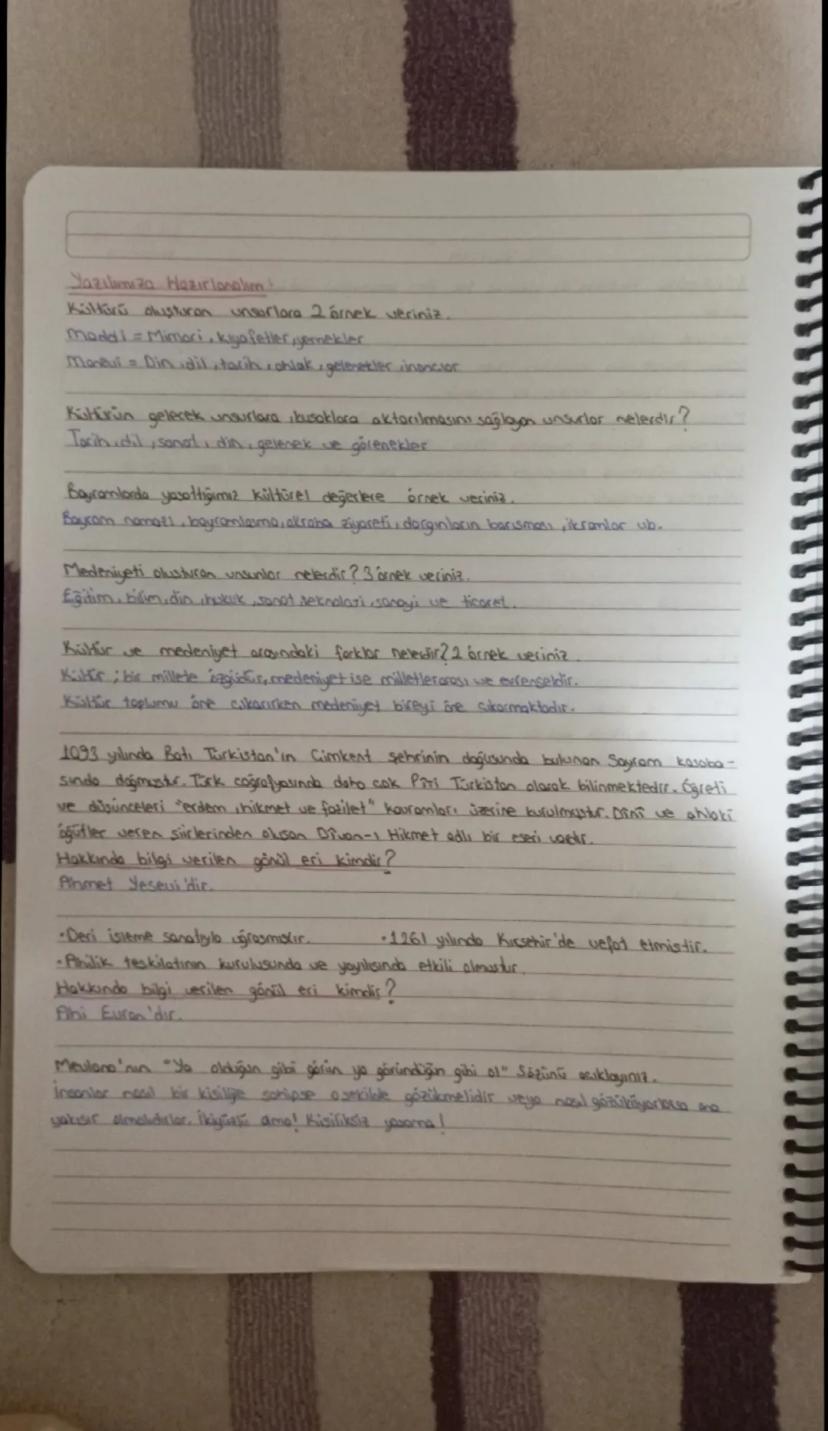 Yazılımıza Hazırlanalım!
Kültürü oluşturan unsurlara 2 örnek veriniz.
Maddi = Mimari, kıyafetler, yemekler
Manevi = Din, dil, tarih, ahlak, gelenekler, inançlar
Kültürün gelecek unsurlara, kuşaklara aktarılmasını sağlayan unsurlar nelerdir?
Tarih, dil, sanat, din, gelenek ve görenekler
Bayramlarda yaşattığımız kültürel değerlere örnek veriniz.
Bayram namazı, bayramlaşma, akraba ziyareti, dargınların barışması, ikramlar vb.
Medeniyeti oluşturan unsurlar nelerdir? 3 örnek veriniz.
Eğitim, bilim, din, hukuk, sanat teknoloji, sanayi ve ticaret.
Kültür ve medeniyet arasındaki farklar nelerdir? 2 örnek veriniz.
Kültür; bir millete özgüdür, medeniyet ise milletlerarası ve evrenseldir.
Kültür toplumu öne çıkarırken medeniyet bireyi öne çıkarmaktadır.
1093 yılında Batı Türkistan'ın Çimkent şehrinin doğusunda bulunan Sayram kasaba-
sında doğmuştur. Türk coğrafyasında daha çok Pîri Türkistan olarak bilinmektedir. Öğreti
ve düşünceleri "erdem, hikmet ve fazilet" kavramları üzerine kurulmuştur. Dinî ve ahlaki
öğütler veren şiirlerinden oluşan Dîvan-ı Hikmet adlı bir eseri vardır.
Hakkında bilgi verilen gönül eri kimdir?
Ahmet Yesevi'dir.
•Deri işleme sanatıyla uğraşmıştır. •1261 yılında Kırşehir'de vefat etmiştir.
•Ahilik teşkilatının kuruluşunda ve yayılışında etkili olmuştur.
Hakkında bilgi verilen gönül eri kimdir?
Ahi Evran'dır.
Mevlana'nın "Ya olduğun gibi görün ya göründüğün gibi ol" Sözünü açıklayınız.
İnsanlar nasıl bir kişiliğe sahipse o şekilde gözükmelidir veya nasıl gözüküyorlarsa ona
yakışır olmalıdırlar. İkiyüzlü olma! Kişiliksiz yaşama!